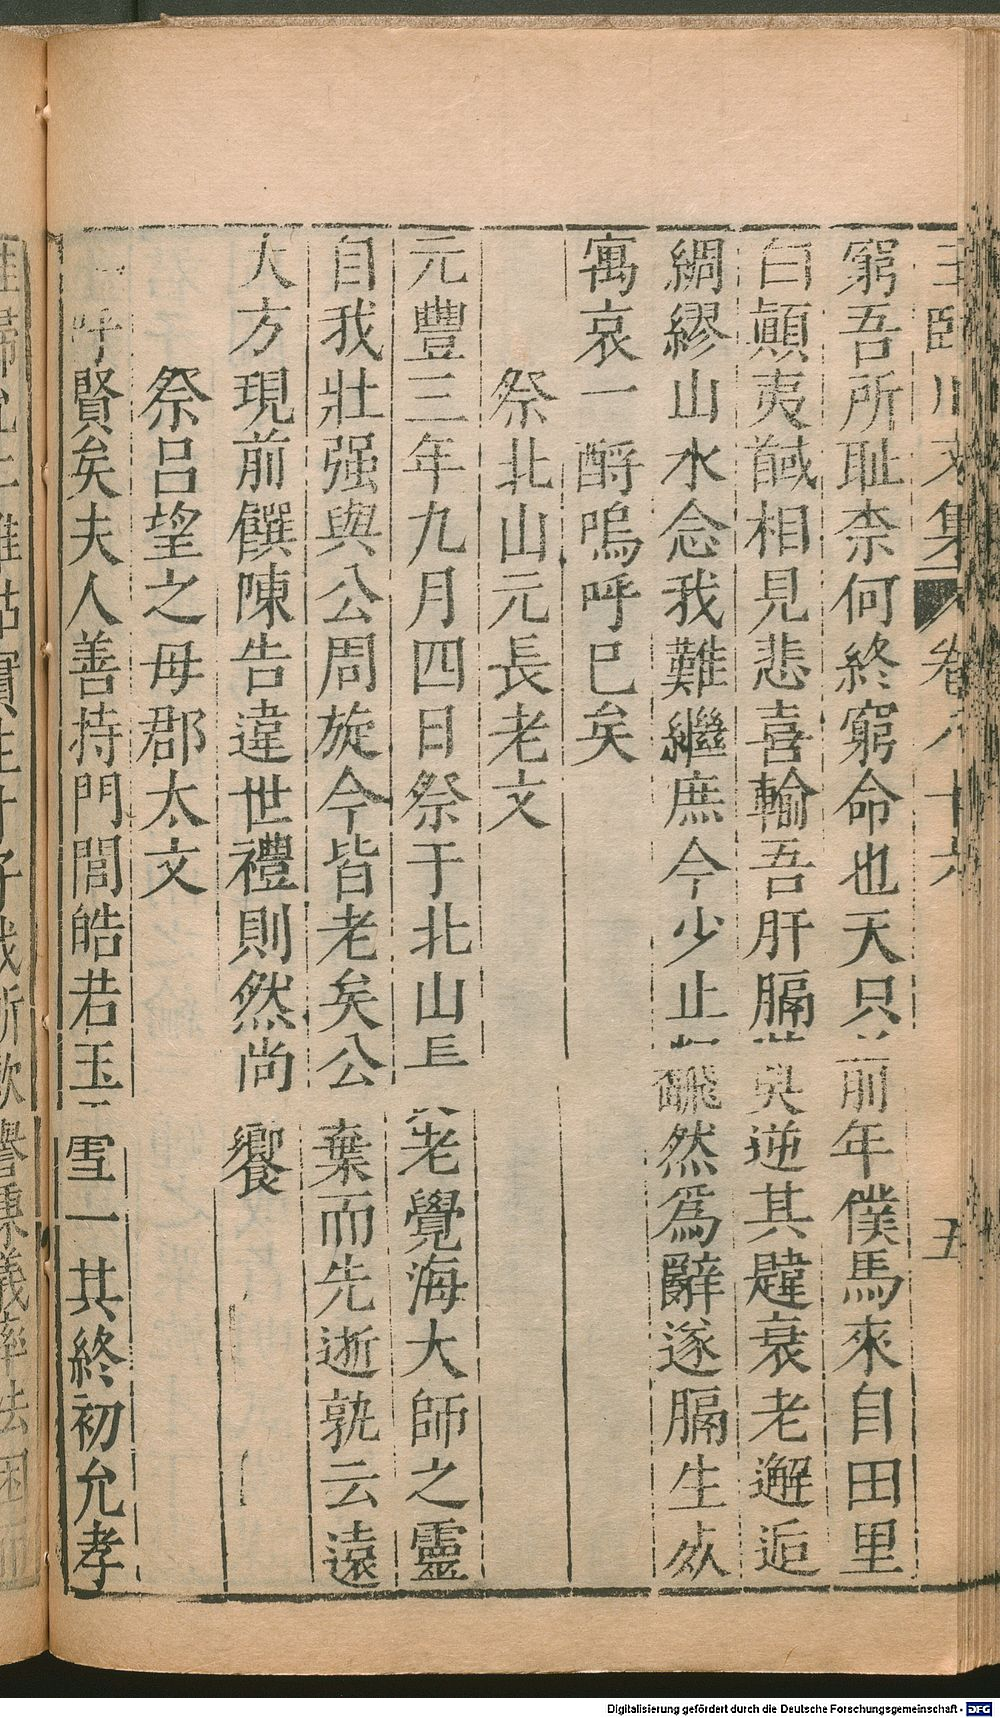 王臨川文集 卷八十六 五
窮吾所耻柰何終窮命也天只前年僕馬來自田里
白顚夷馘相見悲喜輸吾肝膈莫逆其韙衰老邂逅
綢繆山水念我難繼庶今少止飜然爲辭遂膈生㱔
寓哀一酹嗚呼已矣
祭北山元長老文
元豐三年九月四日祭于北山長老覺海大師之靈
自我壯强與公周旋今皆老矣公棄而先逝孰云遠
大方現前饌陳告違世禮則然尚饗
祭呂望之母郡太文
呼賢矣夫人善持門閭皓若玉雪一其終初允孝
Digitalisierung gefördert durch die Deutsche Forschungsgemeinschaft - DFG